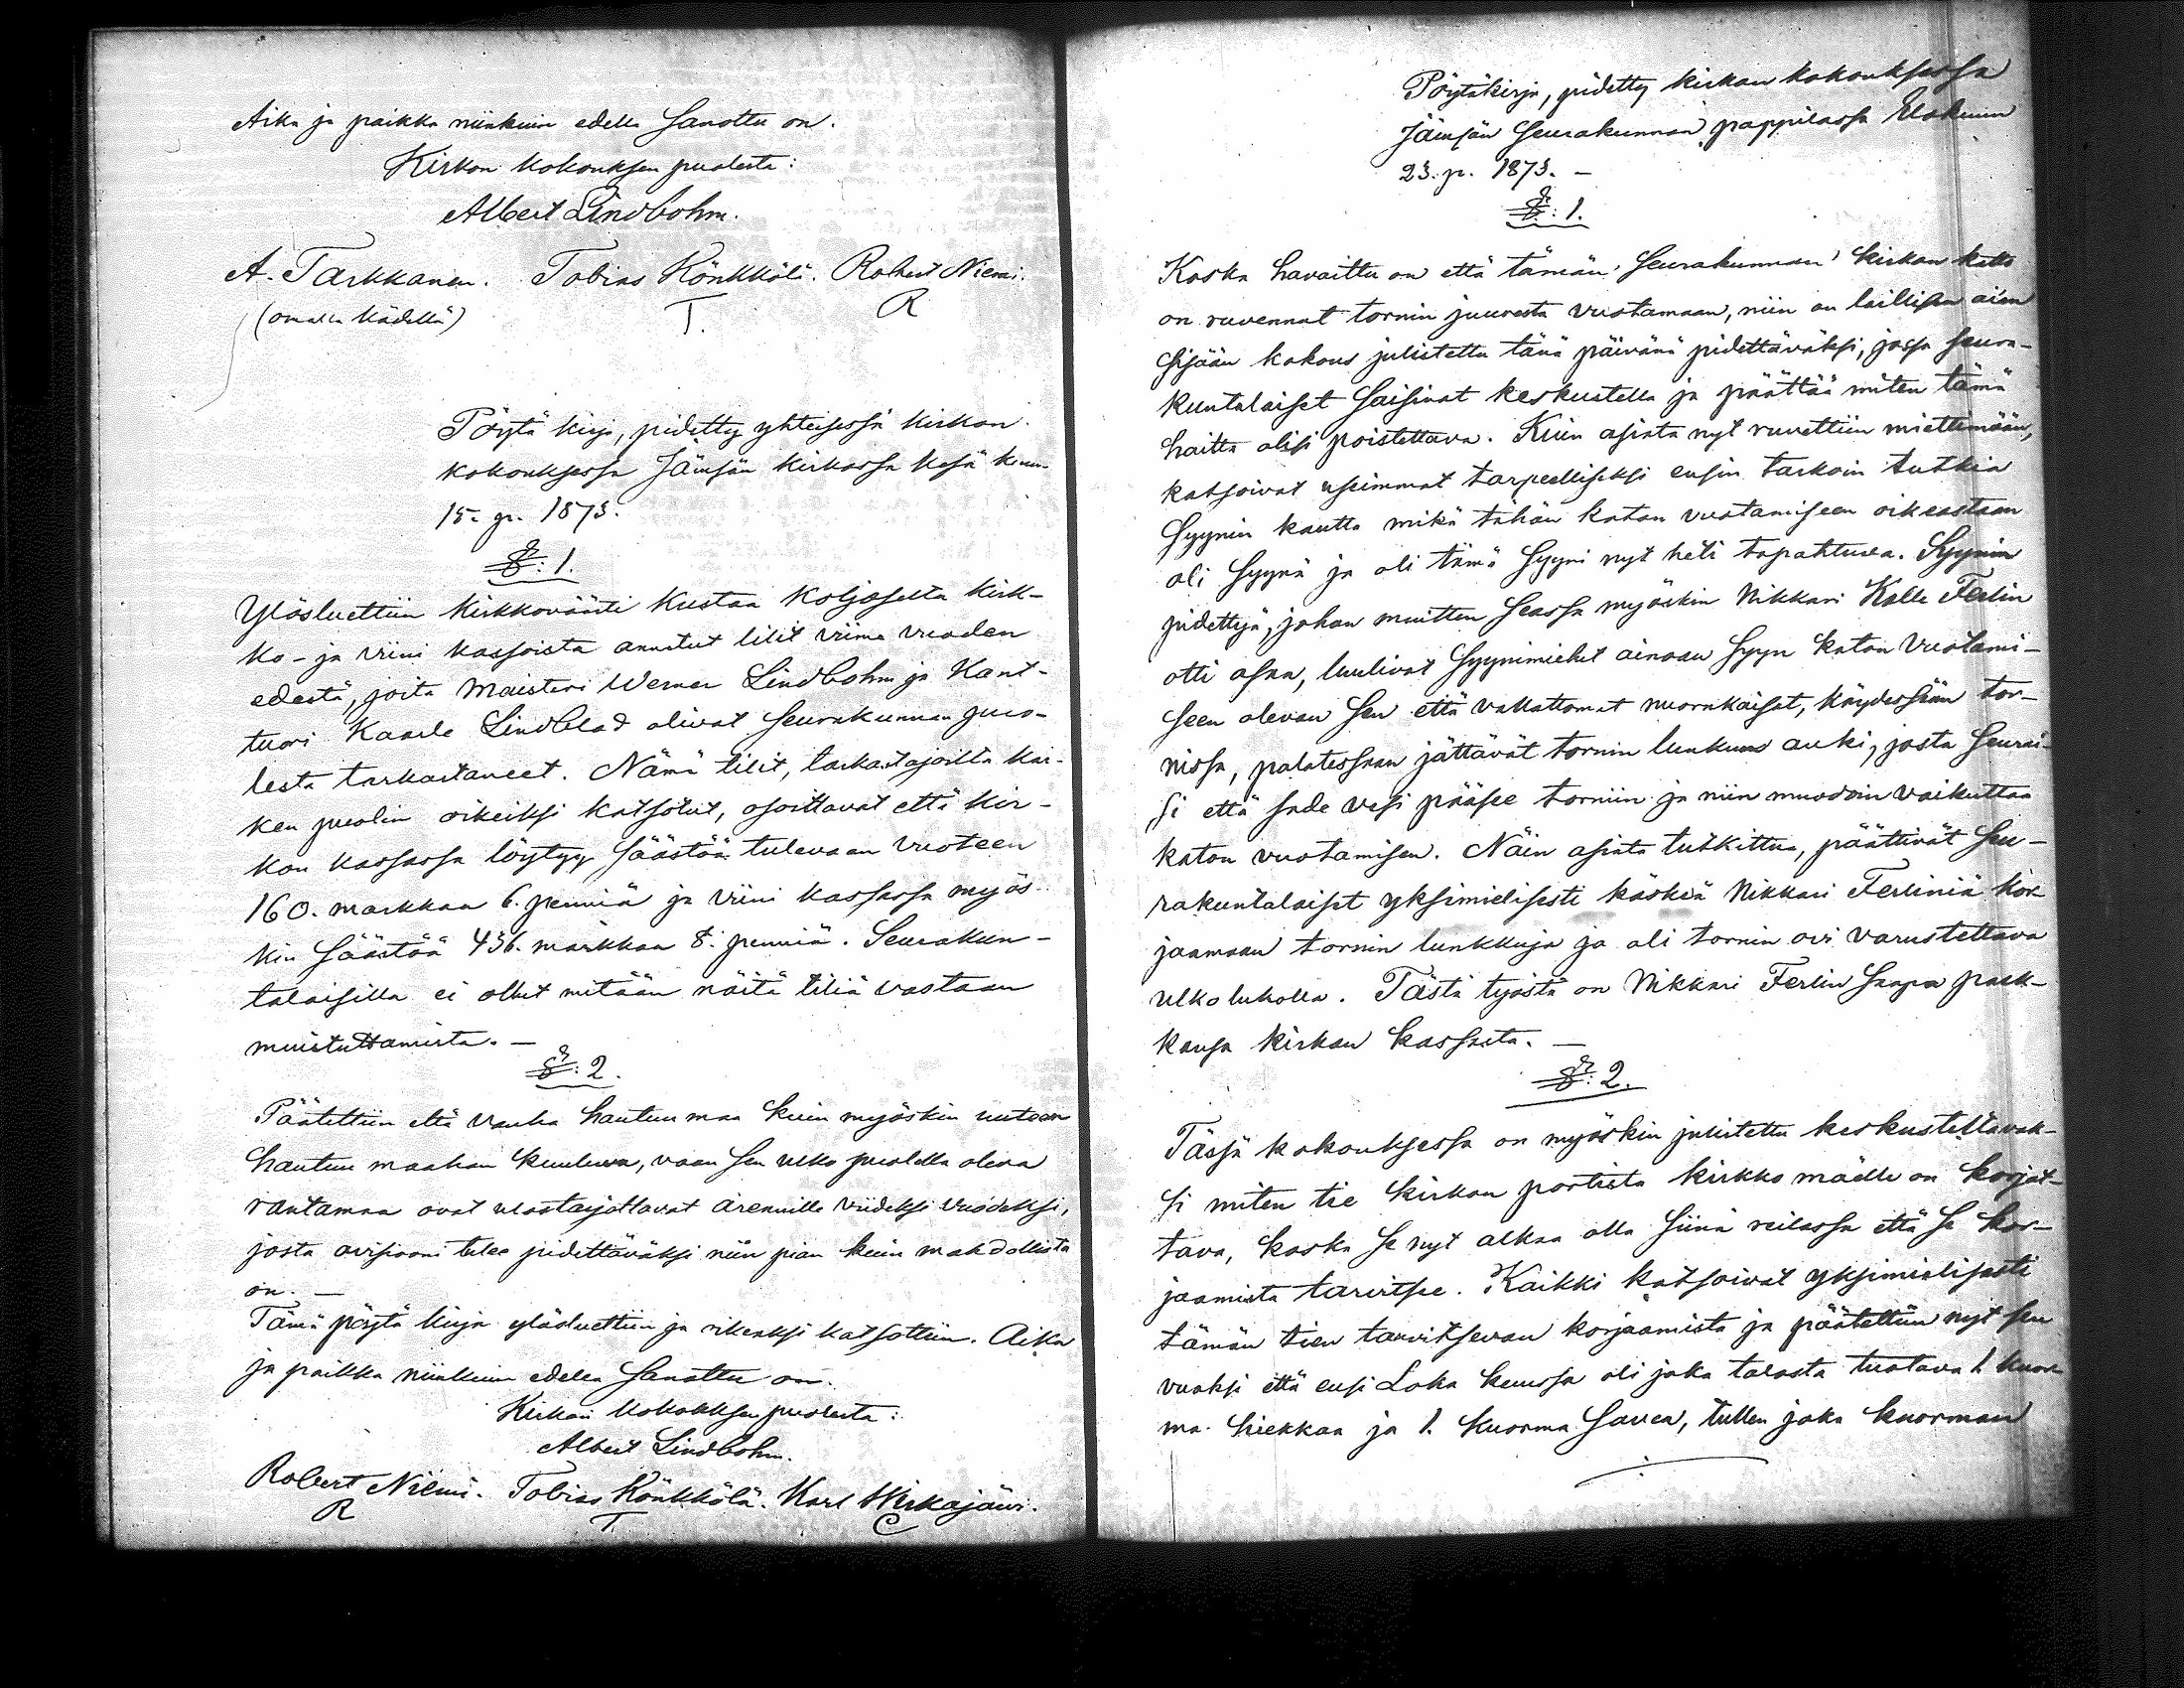 Aika ja paikka niinkuin edellä sanottu on.
Kirkon kokouksen puolesta:
Albert Lindbohm.
A. Tarkkanen. Tobias Könkkölä. Robert Niemi.
(omalla kädellä) T. R
Pöytä kirja, pidetty yhteisessä kirkon
kokouksessa Jämsän kirkossa kesä kuun
15. p. 1873.
§: 1.
Ylösluettiin kirkkoväärti Kustaa Koljoselta kirk-
ko- ja viini kassoista annetut tilit viime vuoden
edestä, joita Maisteri Werner Lindbohm ja Kant-
tuori Kaarle Lindblad olivat seurakunnan puo-
lesta tarkastaneet. Nämä tilit, tarkastajoilta kai-
ken puolin oikeiksi katsotut, osoittavat että kir-
kon kassassa löytyy säästöä tulevaan vuoteen
160. markkaa 6. penniä ja viini kassassa myös-
kin säästöä 436. markkaa 8. penniä. Seurakun-
talaisilla ei ollut mitään näitä tiliä vastaan
muistuttamista. —
§: 2.
Päätettiin että vanha hautuu maa kuin myöskin uuteen
hautuu maahan kuuluva, vaan sen ulko puolella oleva
rantamaa ovat ulostarjottavat arennille viideksi vuodeksi,
josta avisiooni tulee pidettäväksi niin pian kuin mahdollista
on. —
Tämä pöytä kirja ylösluettiin ja oikeaksi katsottiin. Aika
ja paikka niinkuin edellä sanottu on.
Kirkon kokouksen puolesta:
Albert Lindbohm.
Robert Niemi. Tobias Könkkölä. Karl Wirkajärvi.
R T. C
Pöytäkirja, pidetty kirkon kokouksessa
Jämsän seurakunnan pappilassa Elokuun
23. p. 1873. —
§: 1.
Koska havaittu on että tämän seurakunnan kirkon katto
on ruvennut tornin juuresta vuotamaan, niin on laillisen aian
sisään kokous julistettu tänä päivänä pidettäväksi, jossa seura-
kuntalaiset saisivat keskustella ja päättää miten tämä
haitta olisi poistettava. Kuin asiata nyt ruvettiin miettimään,
katsoivat useimmat tarpeelliseksi ensin tarkoin tutkia
syynin kautta mikä tähän katon vuotamiseen oikeastaan
oli syynä ja oli tämä syyni nyt heti tapahtuva. Syynin
pidettyä, johon muitten seassa myöskin Nikkari Kalle Ferlin
otti osaa, luulivat syynimiehet ainoan syyn katon vuotami-
seen olevan sen että vallattomat nuorukaiset, käydessään tor-
nissa, palatessaan jättävät tornin luukun auki, josta seurai-
si että sade vesi pääsee torniin ja niin muodoin vaikuttaa
katon vuotamisen. Näin asiata tutkittua, päättivät seu-
rakuntalaiset yksimielisesti käskeä Nikkari Ferliniä kor-
jaamaan tornin luukkuja ja oli tornin ovi varustettava
ulko lukolla. Tästä työstä on Nikkari Ferlin saapa palk-
kansa kirkon kassasta. —
§: 2.
Tässä kokouksessa on myöskin julistettu keskusteltavak-
si miten tie kirkon portista kirkko mäelle on korjat-
tava, koska se nyt alkaa olla siinä reilassa että se kor-
jaamista tarvitsee. Kaikki katsoivat yksimielisesti
tämän tien tarvitsevan korjaamista ja päätettiin nyt sen
vuoksi että ensi Loka kuussa oli joka talosta tuotava 1 kuor-
ma hiekkaa ja 1. kuorma savea, tullen joka kuorman